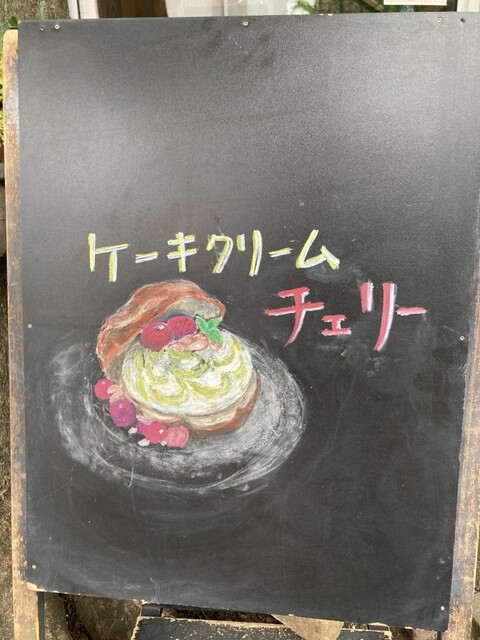 ケーキクリーム
チェリー